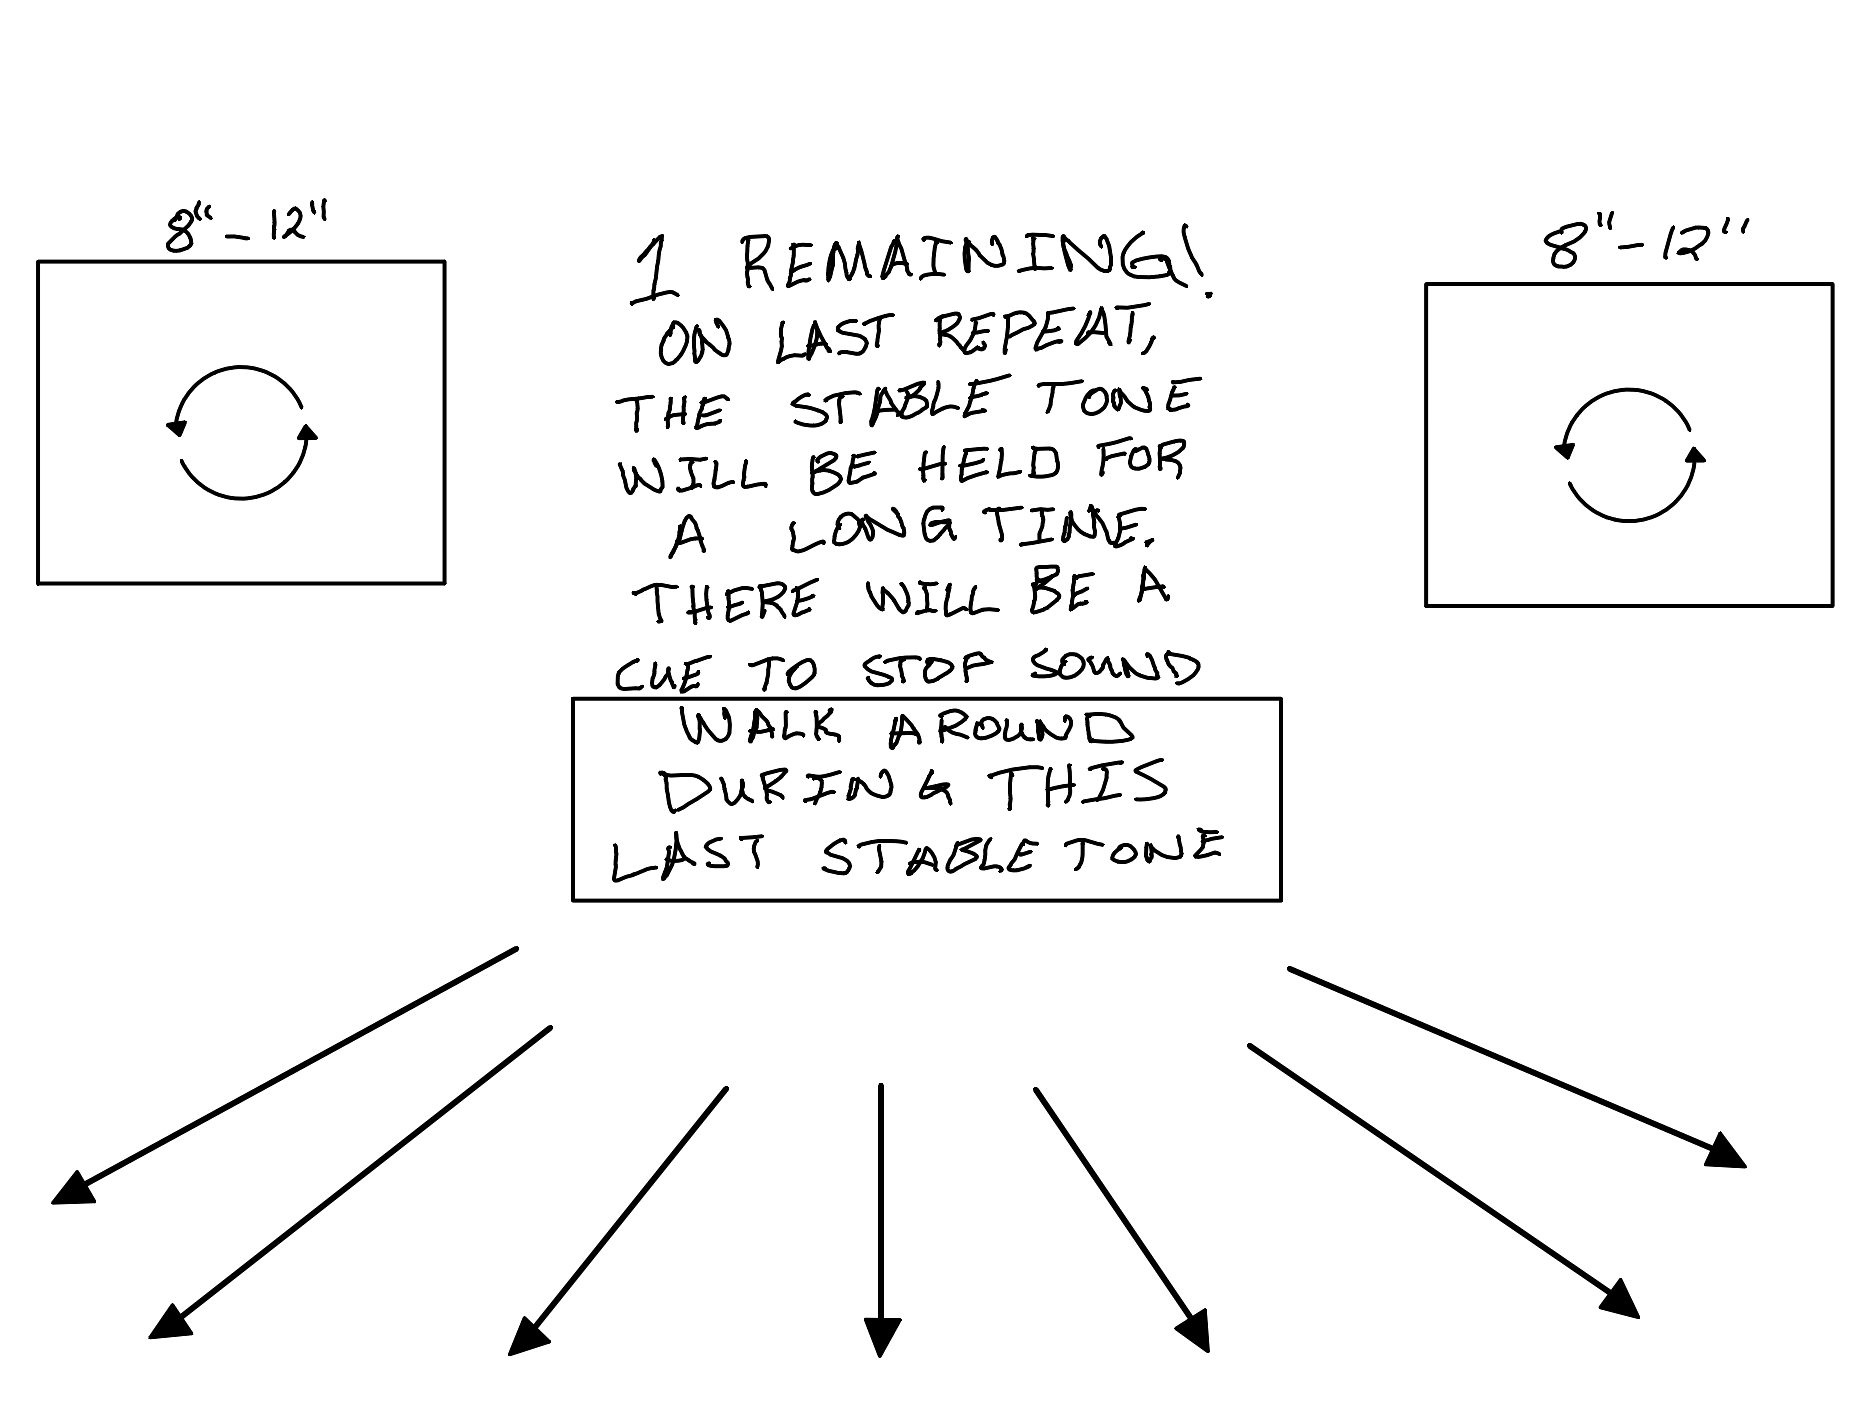 8"-12"
1 REMAINING!
ON LAST REPEAT,
THE STABLE TONE
WILL BE HELD FOR
A LONG TIME.
THERE WILL BE A
CUE TO STOP SOUND
WALK AROUND
DURING THIS
LAST STABLE TONE
8"-12"